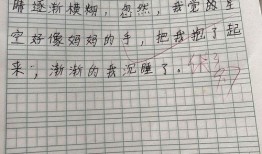 暗逐渐模糊，忽然，我觉的星
空好像妈妈的手，把我抱了起
来，渐渐的我沉睡了。